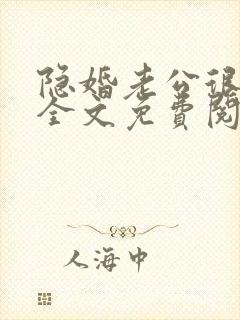 隐婚老公很
全文免费阅
人海中